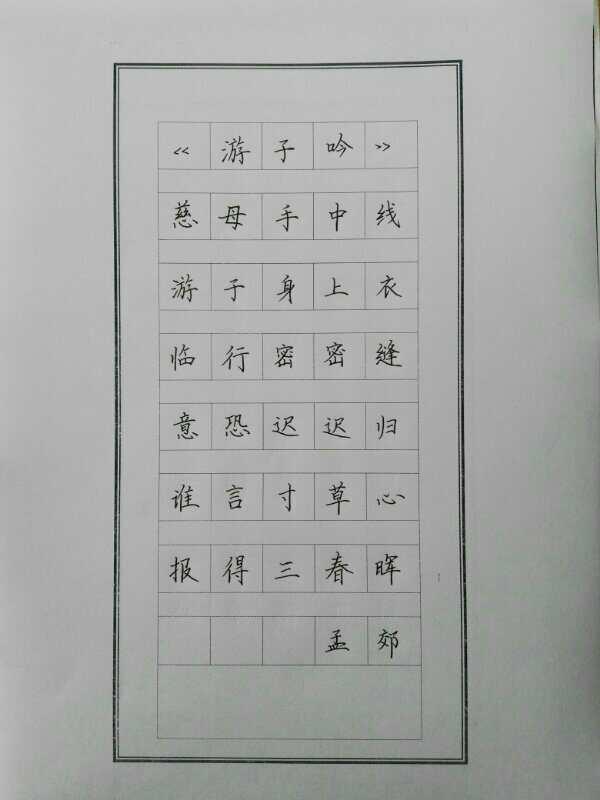 《游子吟》
慈母手中线
游子身上衣
临行密密缝
意恐迟迟归
谁言寸草心
报得三春晖
孟郊